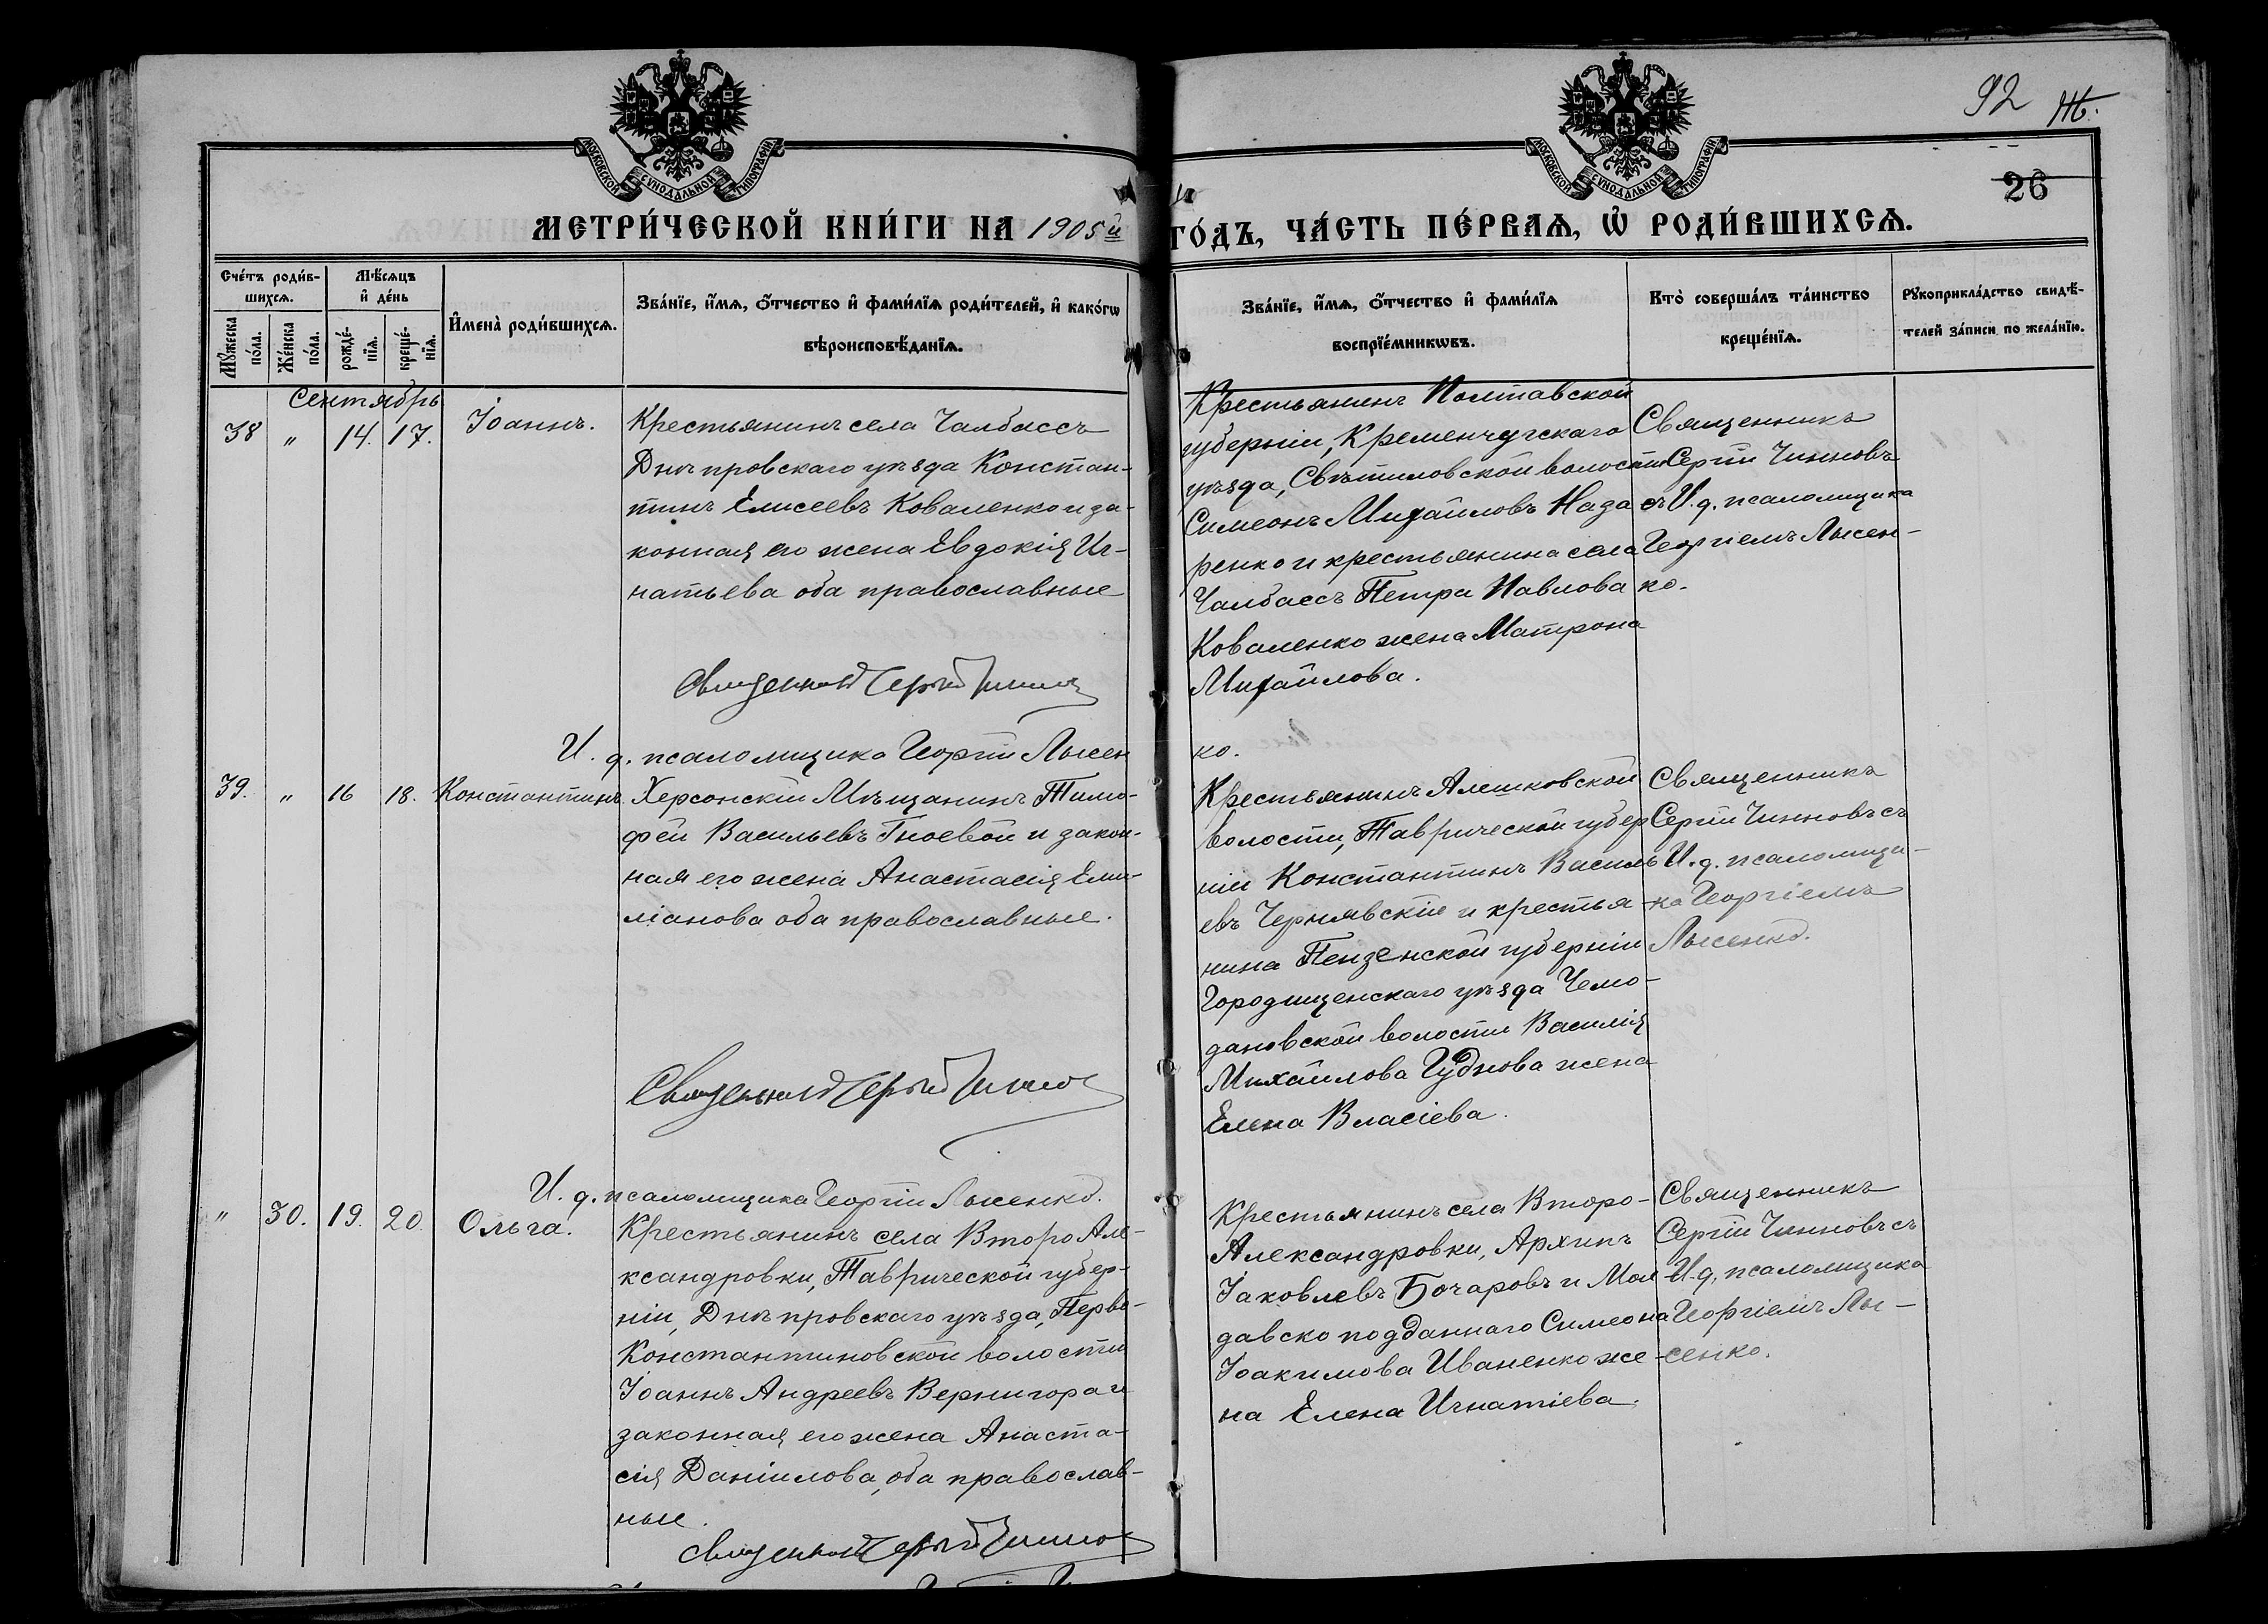 92
26
МОСКОВСКОЙ СУНОДАЛЬНОЙ ТИПОГРАФІИ
МОСКОВСКОЙ СУНОДАЛЬНОЙ ТИПОГРАФІИ
МЕТРИ́ЧЕСКОЙ КНИ́ГИ НА 1905й ГО́ДЪ, ЧА́СТЬ ПЕ́РВАѦ, Ѽ РОДИ́ВШИХСѦ.
Сче́тъ роди́в-
шихсѧ.
Мꙋ́жеска по́ла.
Же́нска по́ла.
Мѣ́сѧцъ
и҆ де́нь
рожде́-
нїѧ.
креще́-
нїѧ.
И҆мена̀ роди́вшихсѧ.
Зва́нїе, и҆́мѧ, ѻ҆́тчество и҆ фами́лїѧ роди́телей, и҆ како́гѡ
вѣроисповѣ́данїѧ.
Зва́нїе, и҆́мѧ, ѻ҆́тчество и҆ фами́лїѧ
воспрїе́мникѡвъ.
Кто̀ соверша́лъ та́инство
креще́нїѧ.
Рꙋкоприкла́дство свидѣ́-
телей за́писи по жела́нїю.
Сентябрь
38 " 14. 17. Іоаннъ.
Крестьянинъ села Чалбассъ
Днѣпровскаго уѣзда Констан-
тинъ Елисеевъ Коваленко и за-
конная его жена Евдокія Иг-
натьева оба православные
Священникъ Сергій Чинновъ
И. д. псаломщика Георгій Лысен
ко.
Крестьянинъ Полтавской
губерніи, Кременчугскаго
уѣзда, Свѣтиловской волости
Симеонъ Михайловъ Наза
ренко и крестьянина села
Чалбассъ Петра Павлова
Коваленко жена Матрона
Михайлова.
Священникъ
Сергій Чинновъ
съ И. д. псаломщика
Георгіемъ Лысен-
ко.
39. " 16 18. Константинъ
Херсонскій Мѣщанинъ Тимо-
фей Васильевъ Гноевой и закон-
ная его жена Анастасія Еми-
ліанова оба православные.
Священникъ Сергій Чинновъ
И. д. псаломщика Георгій Лысенко.
Крестьянинъ Алешковской
волости, Таврической губер
ніи Константинъ Василь
евъ Чернявскій и крестья
нина Пензенской губерніи
Городищенскаго уѣзда Чемо-
дановской волости Василія
Михайлова Гуднова жена
Елена Власіева.
Священникъ
Сергій Чинновъ съ
И. д. псаломщи-
ка Георгіемъ
Лысенко.
" 30. 19. 20. Ольга.
Крестьянинъ села Второ Але-
ксандровки, Таврической губер-
ніи, Днѣпровскаго уѣзда, Перво-
Константиновской волости
Іоаннъ Андреевъ Вернигора и
законная его жена Анаста-
сія Даніилова, оба православ-
ные.
Священникъ Сергій Чинновъ
Крестьянинъ села Второ-
Александровки, Архипъ
Іаковлевъ Бочаровъ и Мол
давско подданнаго Симеона
Іоакимова Иваненко же-
на Елена Игнатіева.
Священникъ
Сергій Чинновъ съ
И. д. псаломщика
Георгіемъ Лы-
сенко.